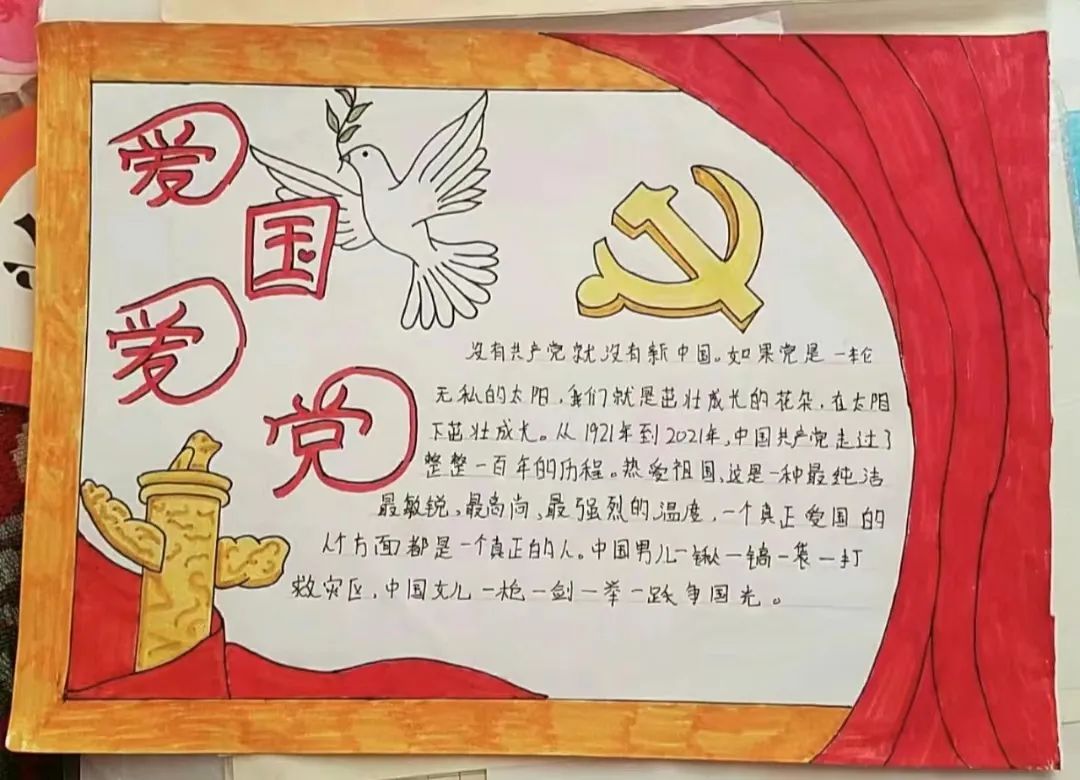 爱国爱党
没有共产党就没有新中国。如果党是一轮
无私的太阳，我们就是茁壮成长的花朵，在太阳
下茁壮成长。从1921年到2021年，中国共产党走过了
整整一百年的历程。热爱祖国，这是一种最纯洁
最敏锐、最高尚、最强烈的温度，一个真正爱国的
人个方面都是一个真正的人。中国男儿一锹一镐一袋一打
救灾区，中国女儿一枪一剑一举一跃争国光。